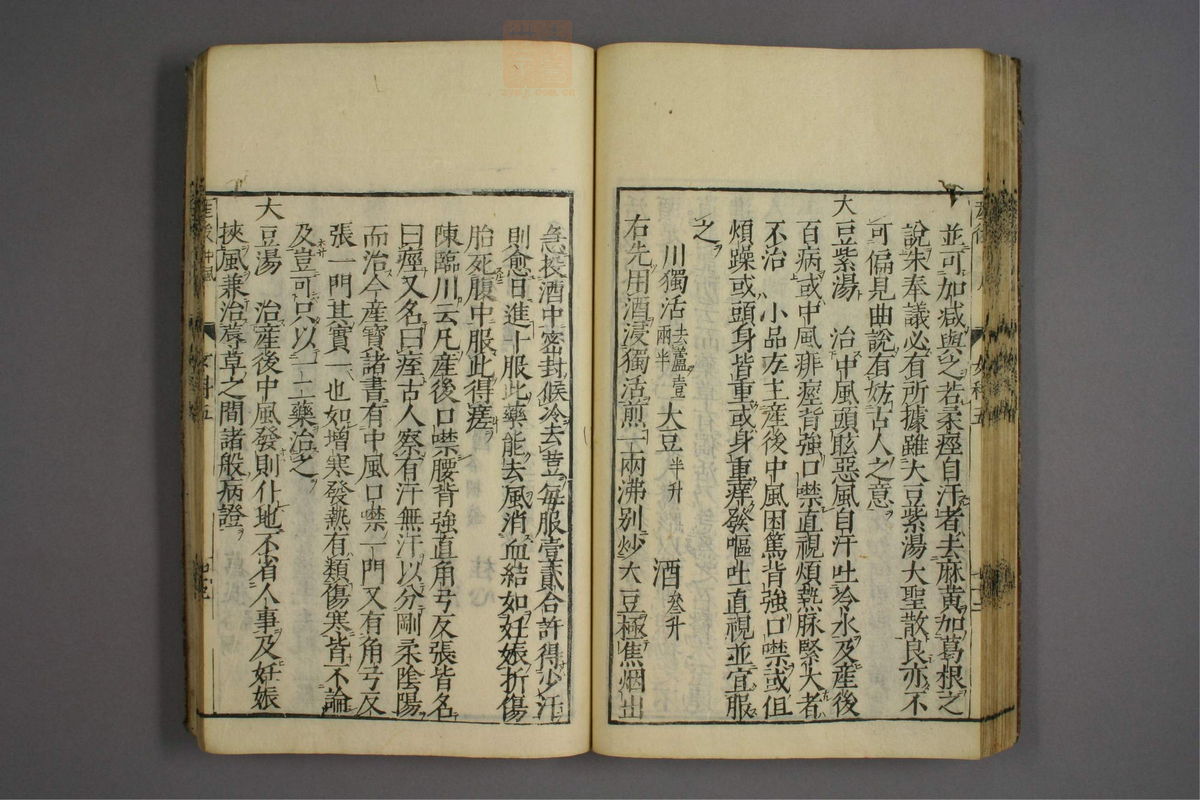 並可加减與之若柔痙自汗者去麻黄加葛根之
說朱奉議必有所據雖大豆紫湯大聖散良亦不
可偏見曲說有妨古人之意
大豆紫湯　治中風頭眩惡風自汗吐冷水及産後
百病或中風痱痙背強口噤直視煩熱脉緊大者
不治　小品方主産後中風困篤背強口噤或但
煩躁或頭身皆重或身重痒發嘔吐直視並宜服
之
川獨活去蘆壹兩半　大豆半升　酒叁升
右先用酒浸獨活煎一兩沸别炒大豆極焦烟出
急投酒中密封候冷去荳每服壹貳合許得少汗
則愈日進十服此藥能去風消血結如妊娠折傷
胎死腹中服此得瘥
陳臨川云凡産後口噤腰背強直角弓反張皆名
曰痙又名曰痓古人察有汗無汗以分剛柔陰陽
而治今産寶諸書有中風口噤一門又有角弓反
張一門其實一也如增寒發熱有類傷寒皆不論
及豈可只以一二藥治之
大豆湯　治産後中風發則仆地不省人事及妊娠
挾風兼治蓐草之間諸般病證